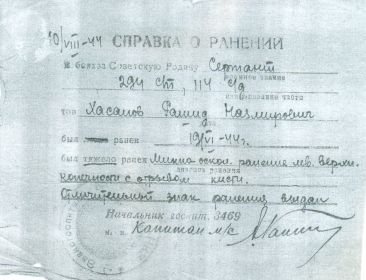 10/VIII-44 СПРАВКА О РАНЕНИИ
В боях за Советскую Родину Сержант
воинское звание
294 с/п, 114 с/д
наименование части
тов Хасанов Рашид
был ранен 19/VI-44г.
был тяжело ранен оскол. ранение лев. верхн.
конечности с отрывом кисти.
Отличительный знак ранения выдан
Начальник госпит. 3469
Капитан м/с